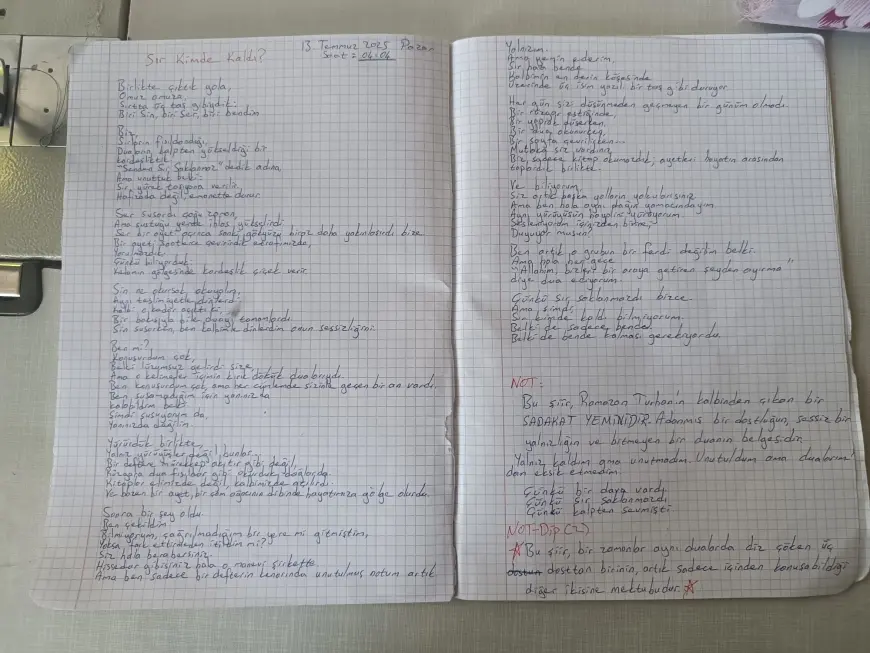 Sır Kimde Kaldı?
13 Temmuz 2025 Pazar
Saat = 04:04
Birlikte çıktık yola,
Omuz omuza,
Sırtta üç taş gibiydik:
Biri Sin, biri Ser, biri bendim
Biz,
Sırların fısıldadığı,
Duaların kalpten yükseldiği bir
kardeşliktik.
"Senden Sır Saklanmaz" dedik adına,
Ama unuttuk belki:
Sır, yürek toprağına verilir,
Hafızada değil, emanette durur
Ser susardı çoğu zaman,
Ama sustuğu yerde ihlas yükselirdi.
Ser bir ayet açınca sanki gökyüzü biraz daha yaklaşırdı bize
Bir ayet, çevirdik etrafımızda,
Yorulmazdık
Çünkü biliyorduk:
kelamın gölgesinde kardeşlik çiçek verir.
Sin az okursak, okuyalım,
teslimiyetle dinlerdi
belki o kadar açıktı ki,
Bir bakışıyla bile duayı tamamlardı
Sin susarken, ben kalbimle dinlerdim onun sessizliğini.
Ben mi?
Konuşurdum çok,
Belki lüzumsuz gelirdi size,
Ama o kelimeler içimin kırık dökük dualarıydı.
Ben konuşurdum çok, ama her cümlemde sizinle geçen bir an vardı.
Ben susamadığım için yanınızda
kalabildim belki.
Şimdi susuyorum da,
Yanınızda değilim.
Yürürdük birlikte,
Yalnız yürüyüşler değil bunlar...
Bir deftere mürekkep akıtır gibi değil,
Rüzgarla dua fısıldar gibi okurduk dualarda
Kitaplar elimizde değil, kalbimizde açılırdı.
Ve bazen bir ayet, bir çam ağacının dibinde hayatımıza gölge olurdu.
Sonra bir şey oldu.
Ben çekildim.
Bilmiyorum, çağrılmadığım bir yere mi gitmiştim,
Yoksa, fark ettirilmeden itildim mi?
Siz hala berabersiniz,
Hissedar gibisiniz hala o manevi şirkette.
Ama ben sadece bir defterin kenarında unutulmuş notum artık
Yalnızım.
Ama yemin ederim,
Sır hala bende
Kalbimin en derin köşesinde
Üzerinde üç isim yazılı bir taş gibi duruyor.
Her gün sizi düşünmeden geçmeyen bir günüm olmadı.
Bir rüzgar estiğinde,
Bir yaprak düşerken,
Bir dua okunurken,
Bir sayfa çevrilirken...
Mutlaka siz vardınız,
Biz, sadece kitap okumazdık; ayetleri hayatın arasından
toplardık birlikte.
Ve biliyorum,
Siz artık başka yolların yolcularısınız
Ama ben hala aynı dağın yamacındayım
Aynı yürüyüşün hayalini yürüyorum.
Sesleniyorum içinizden birine,
Duyuyor musun?
Ben artık o grubun bir ferdi değilim belki.
Ama hala her gece
"Allahım, bizleri bir araya getiren şeyden ayırma"
diye dua ediyorum.
Çünkü Sır saklanmazdı bizce
Ama şimdi,
Sır kimde kaldı bilmiyorum.
Belki de sadece bende.
Belki de bende kalması gerekiyordu.
NOT:
Bu şiir, Ramazan Turhan'ın kalbinden çıkan bir
SADAKAT YEMİNİDİR. Adanmış bir dostluğun, sessiz bir
yalnızlığın ve bitmeyen bir duanın belgesidir.
Yalnız kaldım ama unutmadım. Unutuldum ama dualarım'
dan eksik etmedim.
Çünkü bir dava vardı
Çünkü Sır saklanmazdı
Çünkü kalpten sevmişti
NOT-Dip (2)
☆ Bu şiir, bir zamanlar aynı dualarda diz çöken üç
dostun dosttan birinin, artık sadece içinden konuşabildiği
diğer ikisine mektubudur. ☆